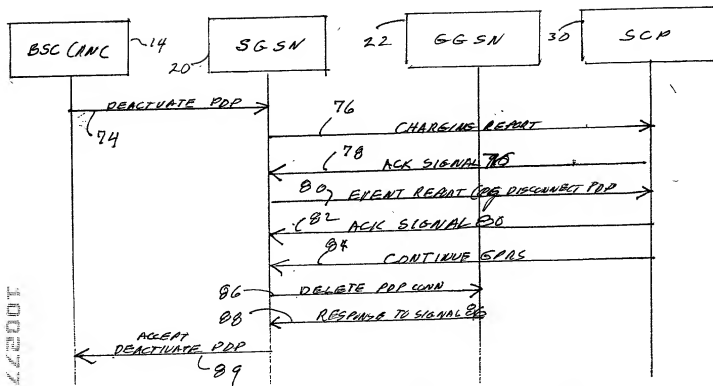 BSC CRNC 14
SGSN 20
22 GGSN
30 SCP
DEACTIVATE PDP
74
76
CHARGING REPORT
78
ACK SIGNAL 76
80
EVENT REPORT DISCONNECT PDP
82
ACK SIGNAL 80
84
CONTINUE GPRS
86
DELETE PDP CONN
88
RESPONSE TO SIGNAL 86
ACCEPT
DEACTIVATE PDP
89